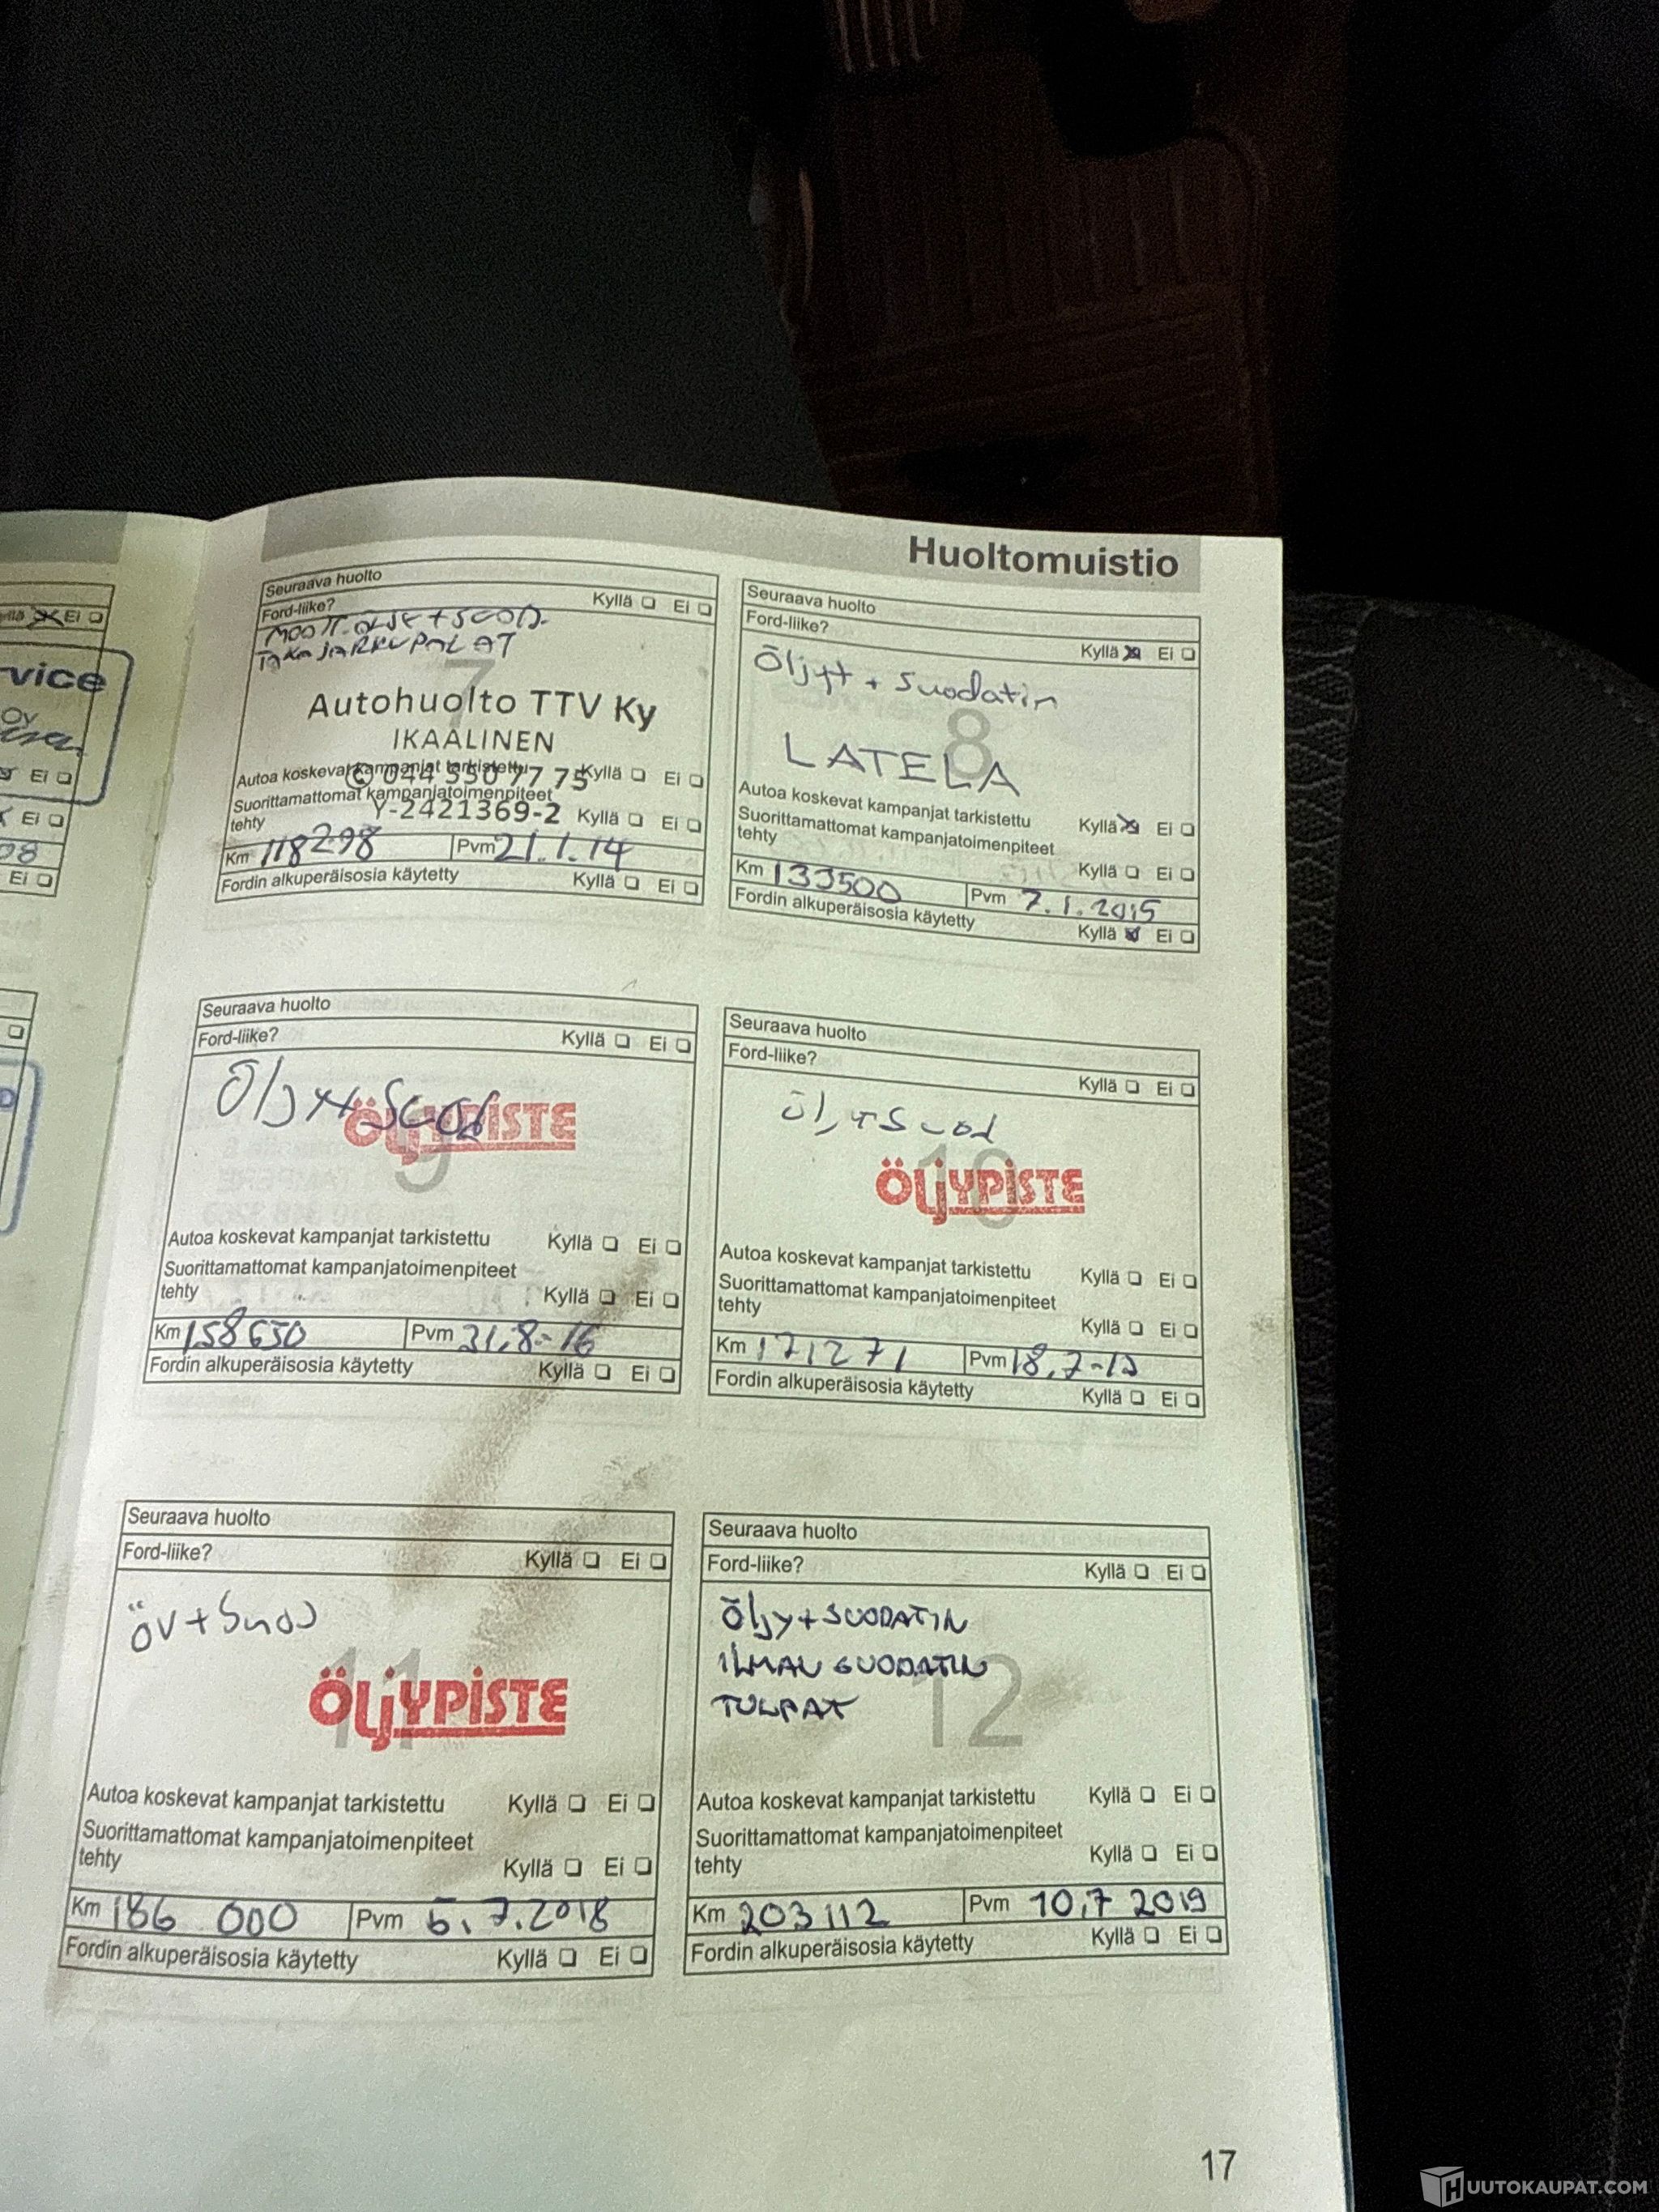 Huoltomuistio
Seuraava huolto
Ford-liike? Kyllä Ei
TAKAJARRUPALAT
7
Autohuolto TTV Ky
IKAALINEN
Autoa koskevat kampanjat tarkistettu Kyllä Ei
044 550 77 75
Suorittamattomat kampanjatoimenpiteet
tehty Kyllä Ei
Y-2421369-2
Km 118298 Pvm 21.1.14
Fordin alkuperäisosia käytetty Kyllä Ei
Seuraava huolto
Ford-liike?
Kyllä Ei
Öljyt + suodatin
8
LATELA
Autoa koskevat kampanjat tarkistettu Kyllä Ei
Suorittamattomat kampanjatoimenpiteet
tehty
Kyllä Ei
Km 133500 Pvm 7.1.2015
Fordin alkuperäisosia käytetty
Kyllä Ei
Seuraava huolto
Ford-liike? Kyllä Ei
ÖLJYPISTE
9
Autoa koskevat kampanjat tarkistettu Kyllä Ei
Suorittamattomat kampanjatoimenpiteet
tehty Kyllä Ei
Km 158650 Pvm 31.8.-16
Fordin alkuperäisosia käytetty Kyllä Ei
Seuraava huolto
Ford-liike?
Kyllä Ei
10
ÖLJYPISTE
Autoa koskevat kampanjat tarkistettu Kyllä Ei
Suorittamattomat kampanjatoimenpiteet
tehty
Kyllä Ei
Km 171271 Pvm 18.7-17
Fordin alkuperäisosia käytetty Kyllä Ei
Seuraava huolto
Ford-liike? Kyllä Ei
ÖV + Suod
11
ÖLJYPISTE
Autoa koskevat kampanjat tarkistettu Kyllä Ei
Suorittamattomat kampanjatoimenpiteet
tehty Kyllä Ei
Km 186 000 Pvm 5.7.2018
Fordin alkuperäisosia käytetty Kyllä Ei
Seuraava huolto
Ford-liike? Kyllä Ei
Öljy+SUODATIN
ILMAN SUODATIN
TULPAT
12
Autoa koskevat kampanjat tarkistettu Kyllä Ei
Suorittamattomat kampanjatoimenpiteet
tehty Kyllä Ei
Km 203112 Pvm 10.7 2019
Fordin alkuperäisosia käytetty Kyllä Ei
17
HUUTOKAUPAT.COM